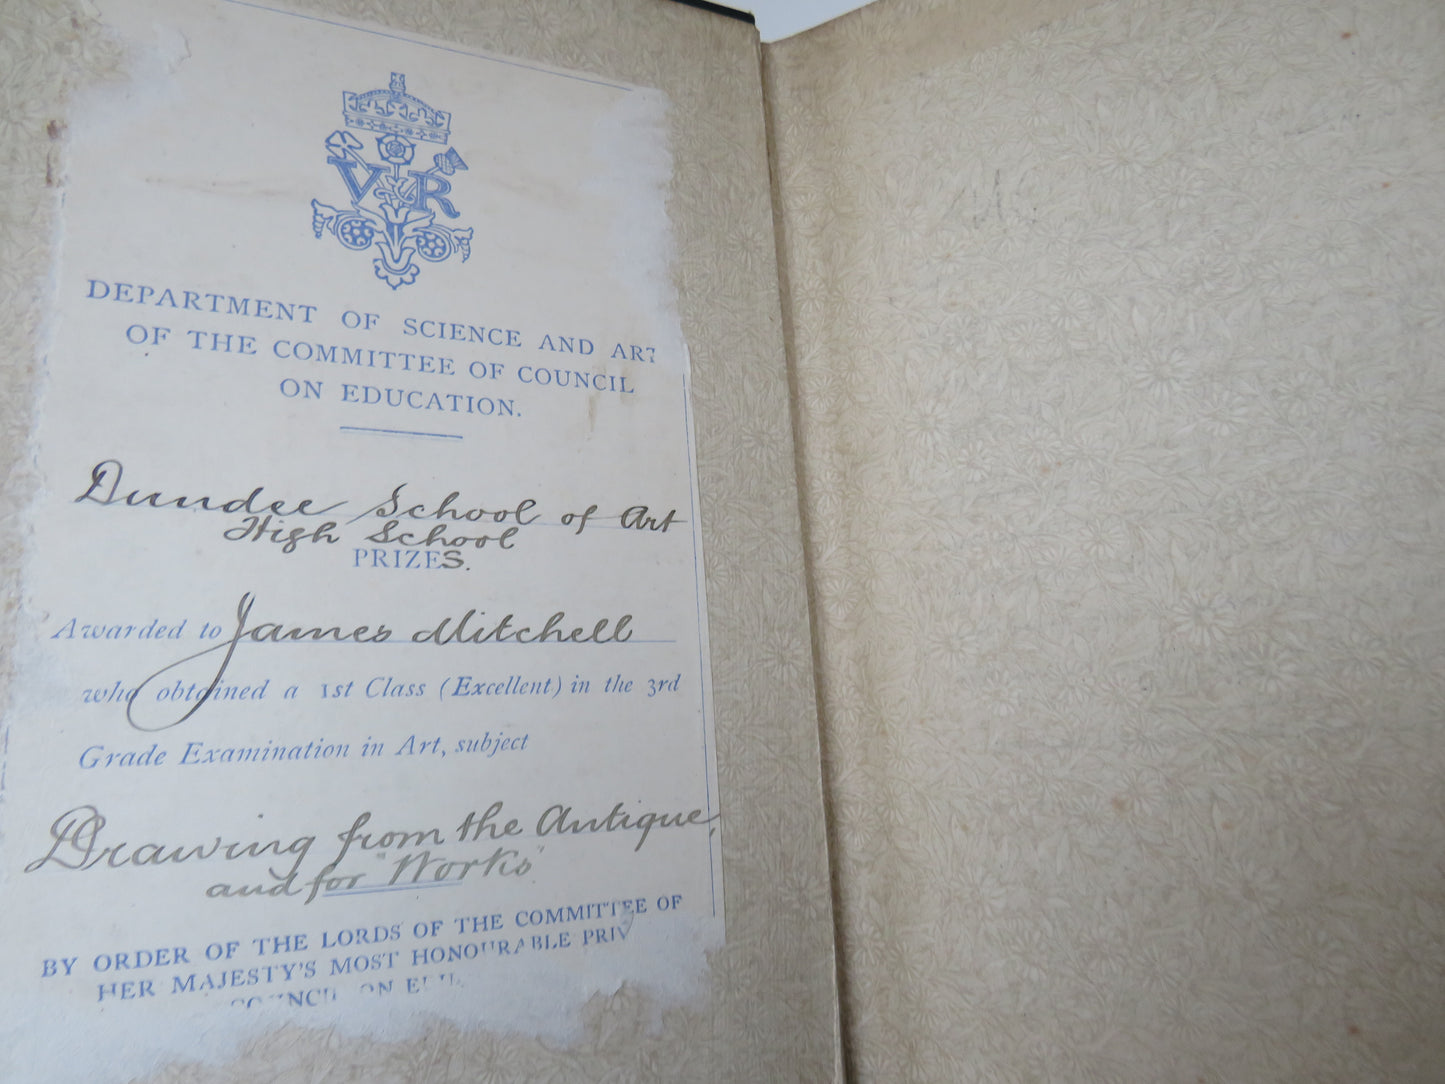 VR
DEPARTMENT OF SCIENCE AND ART
OF THE COMMITTEE OF COUNCIL
ON EDUCATION.
Dundee School of Art
High School
PRIZES.
Awarded to James Mitchell
who obtained a 1st Class (Excellent) in the 3rd
Grade Examination in Art, subject
Drawing from the Antique,
and for "Works"
BY ORDER OF THE LORDS OF THE COMMITTEE OF
HER MAJESTY'S MOST HONOURABLE PRIV
COUNCIL ON